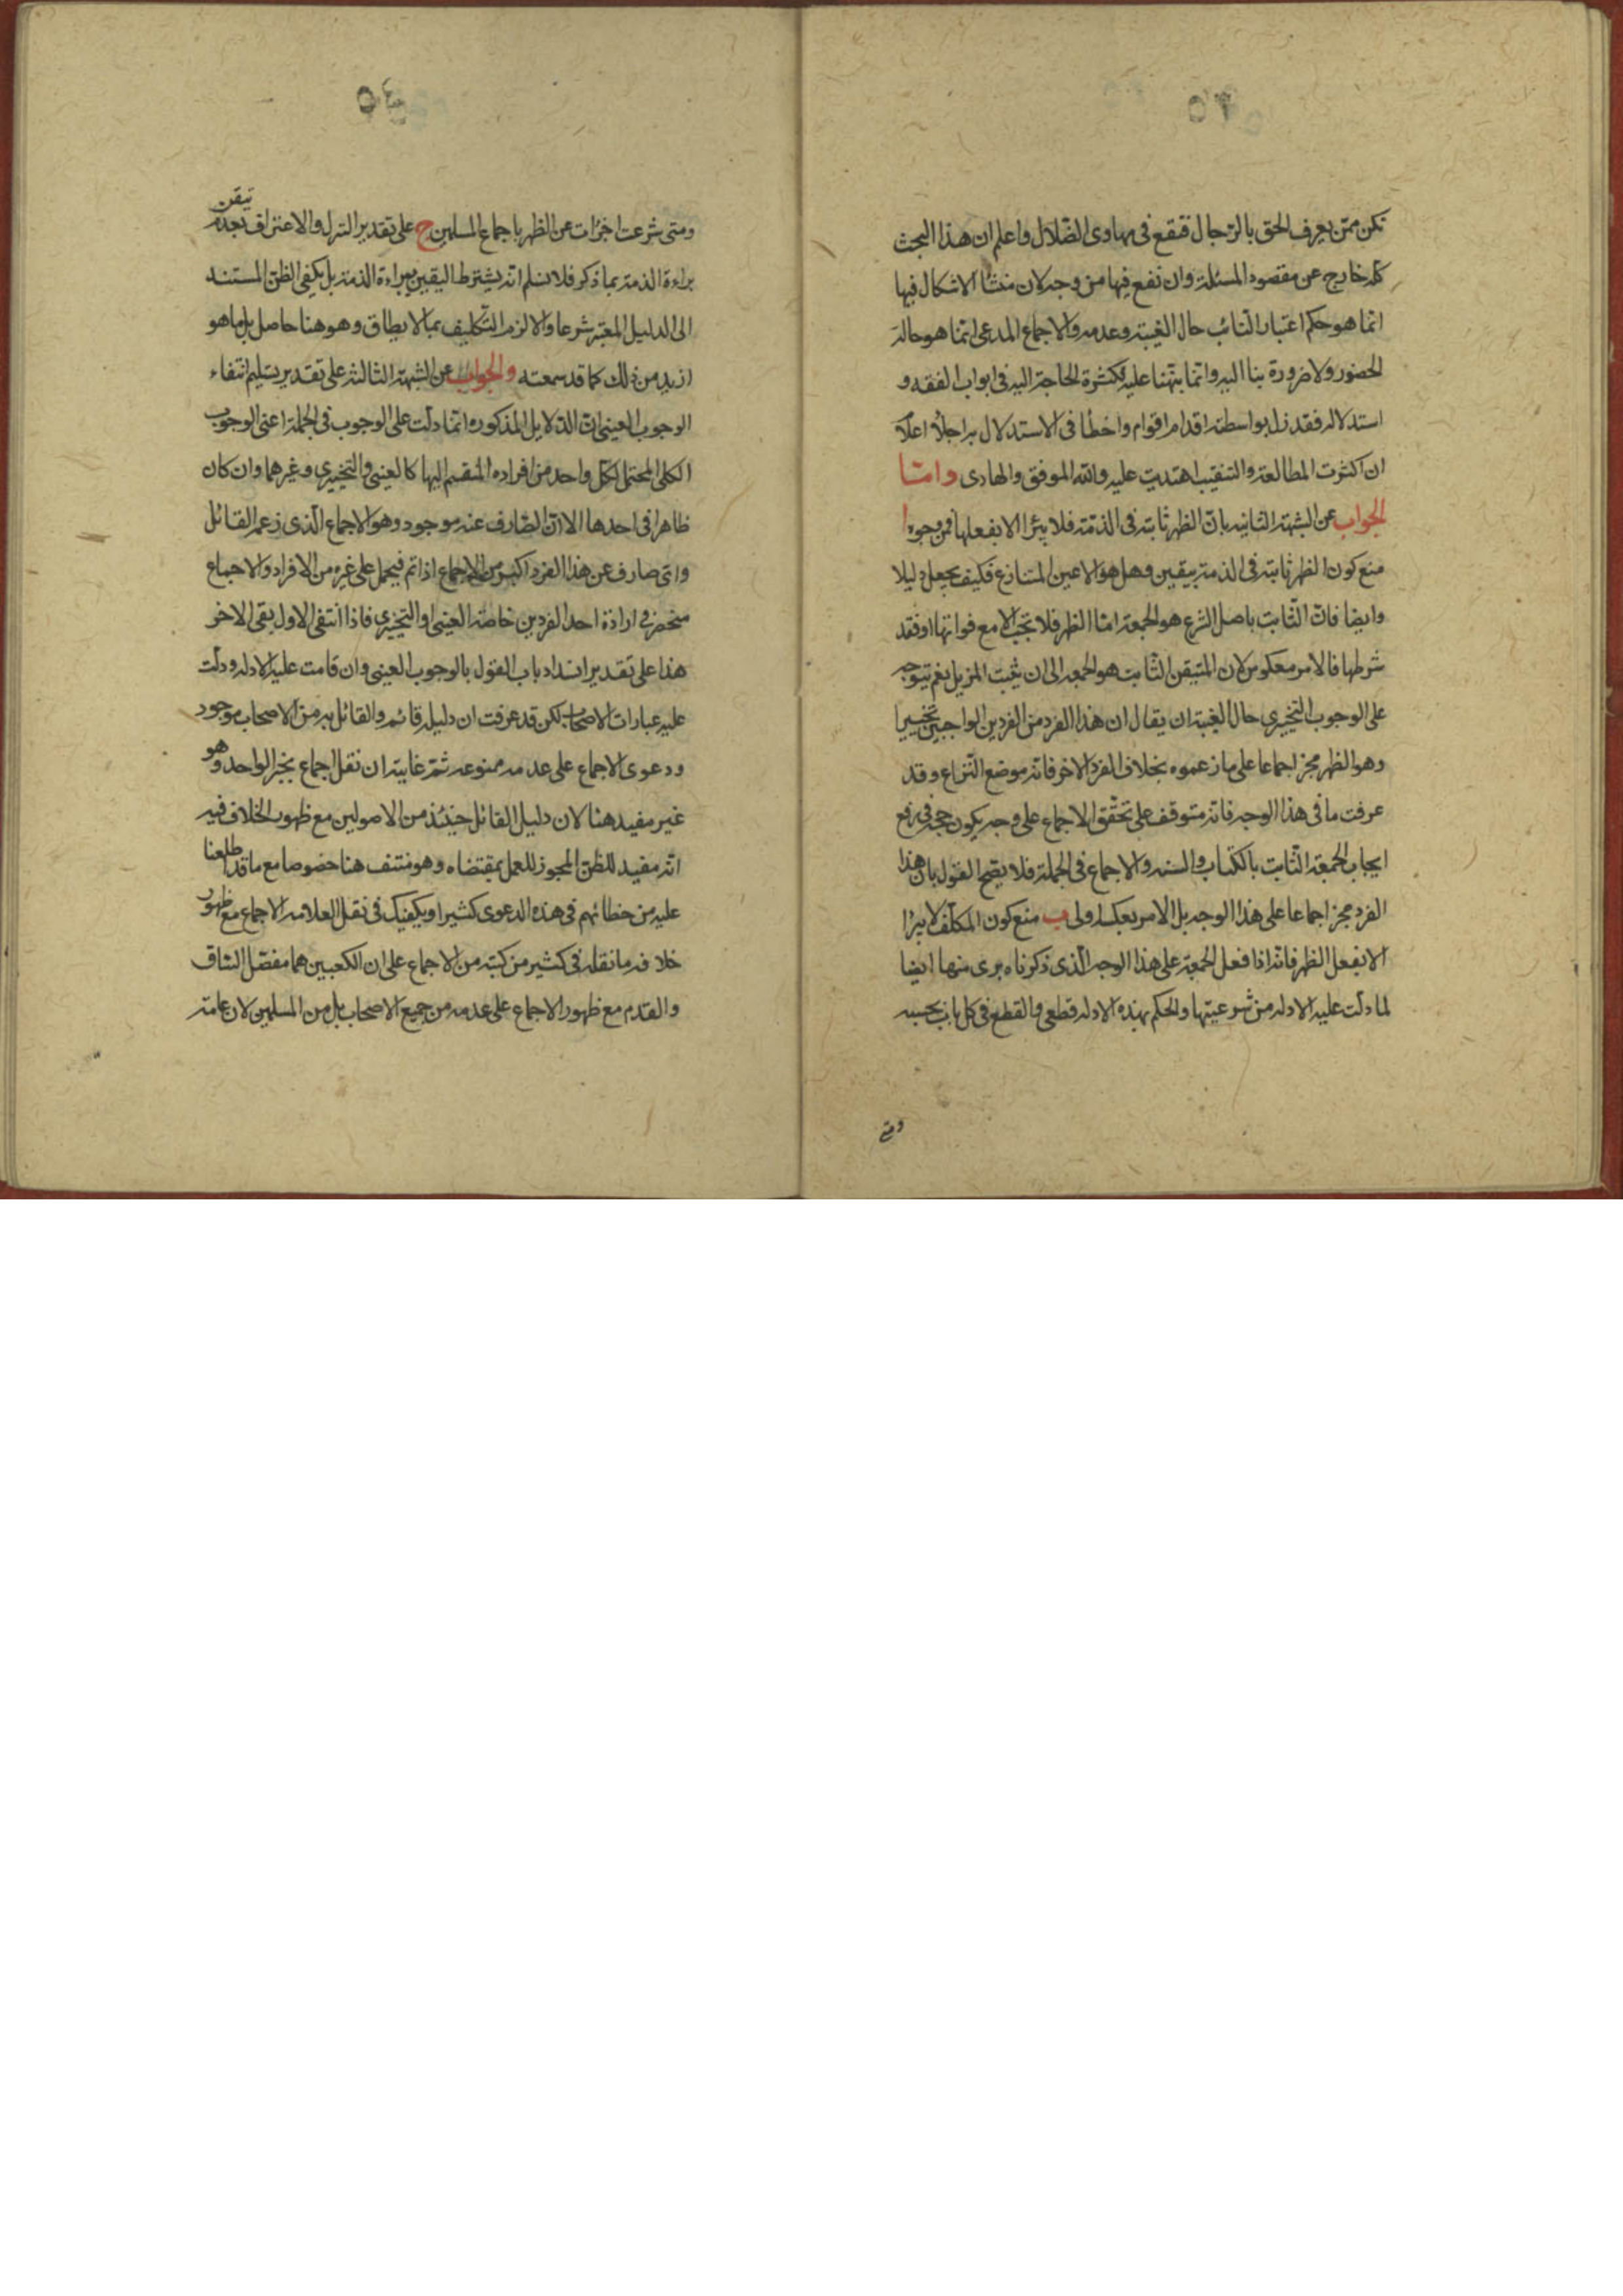 ٥٣
تكن ممن يعرف الحق بالرجال فتقع فى مهاوى الضلال واعلم ان هذا البحث
كله خارج عن مقصود المسئلة وان نفع فيها من وجه لان منشا الاشكال فيها
انما هو حكم اعتبار النائب حال الغيبة وعدمه والاجماع المدعى انما هو حالة
الحضور ولا ضرورة بنا اليه وانما نبهنا عليه لكثرة الحاجة اليه فى ابواب الفقه و
استدلاله فقد زل بواسطته اقدام اقوام واخطأ فى الاستدلال به اجلاء اعلام
ان اكثرت المطالعة والتنقيب اهتديت عليه والله الموفق والهادى واما
الجواب عن الشبهة الثانيه بان الظهر ثابته فى الذمة فلا يبرأ الا بفعلها فمن وجوه ا
منع كون الظهر ثابته فى الذمة بيقين وهل هو الا عين المتنازع فكيف يجعل دليلا
وايضا فان الثابت باصل الشرع هو الجمعة اما الظهر فلا تجب الا مع فواتها او فقد
شرطها فالامر معكوس لان المتيقن الثابت هو الجمعه الى ان يثبت المزيل نعم يتوجه
على الوجوب التخييرى حال الغيبة ان يقال ان هذا الفرد من الفردين الواجبين تخييرا
وهو الظهر مجز اجماعا على ما زعموه بخلاف الفرد الاخر فانه موضع النزاع وقد
عرفت ما فى هذا الوجه فانه متوقف على تحقق الاجماع على وجه يكون حجة فى رفع
ايجاب الجمعة الثابت بالكتاب والسنه والاجماع فى الجملة فلا يصح القول بان هذا
الفرد مجز اجماعا على هذا الوجه بل الامر بعكسه اولى ب منع كون المكلف لا يبرأ
الا بفعل الظهر فانه اذا فعل الجمعة على هذا الوجه الذى ذكرناه برى منها ايضا
لما دلت عليه الادله من شرعيتها والحكم بهذه الادله قطعى والقطع فى كل باب بحسبه
ومتى
٥٤
تيقن
ومتى شرعت اجزات عن الظهر باجماع المسلمين ج على تقدير التنزل والاعتراف بعدم
براءة الذمة بما ذكر فلا نسلم انه يشترط اليقين ببراءة الذمة بل يكفى الظن المستند
الى الدليل المعتبر شرعا والا لزم التكليف بما لا يطاق وهو هنا حاصل بل ما هو
ازيد من ذلك كما قد سمعته والجواب عن الشبهة الثالثه على تقدير تسليم انتفاء
الوجوب العينى ان الدلايل المذكوره انما دلت على الوجوب فى الجملة اعنى الوجوب
الكلى المحتمل لكل واحد من افراده المنقسم اليها كالعينى والتخييرى وغيرهما وان كان
ظاهرا فى احدها الا ان الصارف عنه موجود وهو الاجماع الذى زعمه القائل
واى صارف عن هذا الفرد اكبر من الاجماع اذا تم فيحمل على غيره من الافراد والاجماع
منحصر فى ارادة احد الفردين خاصة العينى او التخييرى فاذا انتفى الاول بقى الاخر
هذا على تقدير انسداد باب القول بالوجوب العينى وان قامت عليه الادله ودلت
عليه عبارات الاصحاب لكن قد عرفت ان دليله قائم والقائل به من الاصحاب موجود
ودعوى الاجماع على عدمه ممنوعه ثم غايته ان نقل اجماع بخبر الواحد وهو
غير مفيد هنا لان دليل القائل حينئذ من الاصولين مع ظهور الخلاف فيه
انه مفيد للظن المجوز للعمل بمقتضاه وهو منتف هنا خصوصا مع ما قد اطلعنا
عليه من خطائهم فى هذه الدعوى كثيرا ويكفيك فى نقل العلامه الاجماع مع ظهور
خلافه ما نقله فى كثير من كتبه من الاجماع على ان الكعبين هما مفصل الساق
والقدم مع ظهور الاجماع على عدمه من جميع الاصحاب بل من المسلمين لان عامة